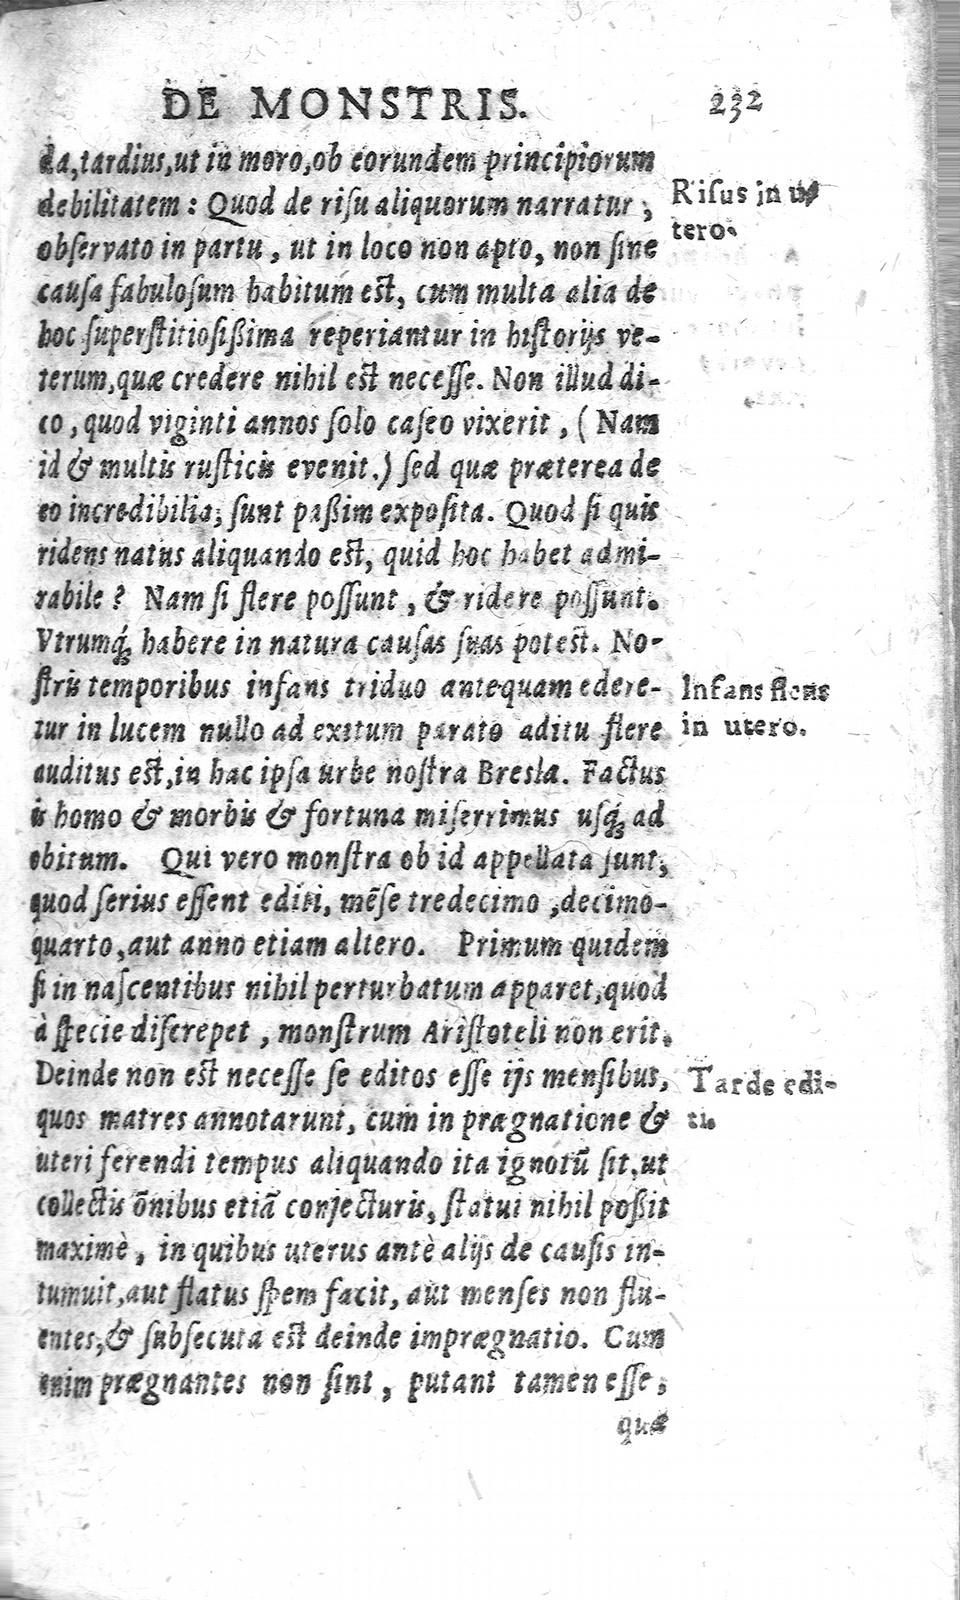 DE MONSTRIS. 232
da, tardius, ut in moro, ob eorundem principiorum
debilitatem: Quod de risu aliquorum narratur;
Risus in u-
observato in partu, ut in loco non apto, non sine
tero.
causa fabulosum habitum est, cum multa alia de
hoc superstitiosißima reperiantur in historijs ve-
terum, quæ credere nihil est necesse. Non illud di-
co, quod viginti annos solo caseo vixerit, (Nam
id & multis rusticis evenit.) sed quæ præterea de
eo incredibilia, sunt paßim exposita. Quod si quis
ridens natus aliquando est, quid hoc habet admi-
rabile? Nam si flere possunt, & ridere possunt.
Vtrumq́; habere in natura causas suas potest. No-
stris temporibus infans triduo antequam edere-
Infans flens
tur in lucem nullo ad exitum parato aditu flere
in utero.
auditus est, in hac ipsa urbe nostra Bresla. Factus
is homo & morbis & fortuna miserrimus usq́; ad
obitum. Qui vero monstra ob id appellata sunt,
quod serius essent editi, mēse tredecimo, decimo-
quarto, aut anno etiam altero. Primum quidem
si in nascentibus nihil perturbatum apparet, quod
à specie discrepet, monstrum Aristoteli non erit.
Deinde non est necesse se editos esse ijs mensibus,
Tarde edi-
quos matres annotarunt, cum in prægnatione &
ti.
uteri ferendi tempus aliquando ita ignotū sit, ut
collectis ōnibus etiā conjecturis, statui nihil poßit
maximè, in quibus uterus antè alijs de causis in-
tumuit, aut flatus spem facit, aut menses non flu-
entes, & subsecuta est deinde imprægnatio. Cum
enim prægnantes non sint, putant tamen esse,
quæ